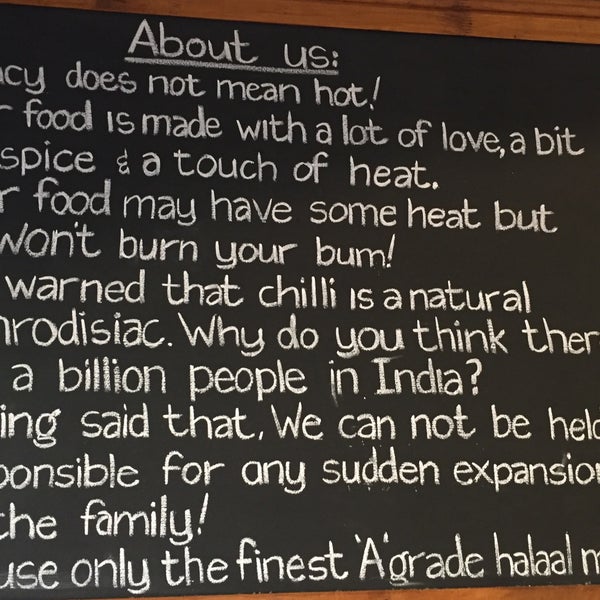 About us:
cy does not mean hot!
r food is made with a lot of love, a bit
spice & a touch of heat.
r food may have some heat but
won't burn your bum!
warned that chilli is a natural
hrodisiac. Why do you think ther
a billion people in India?
ing said that, We can not be held
ponsible for any sudden expansion
the family!
use only the finest 'A' grade halaal m